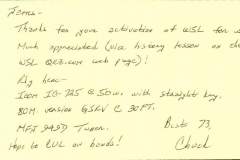 James -
Thanks for your activation of WSL for
Much appreciated (nice history lesson on the
WSL QRZ.com web page)!
Rig here -
Icom IC-725 @ 50w with straight key.
80M. version G5RV @ 30FT.
MFJ 949D Tuner.
Best 73,
Hope to CUL on bands!
Chuck